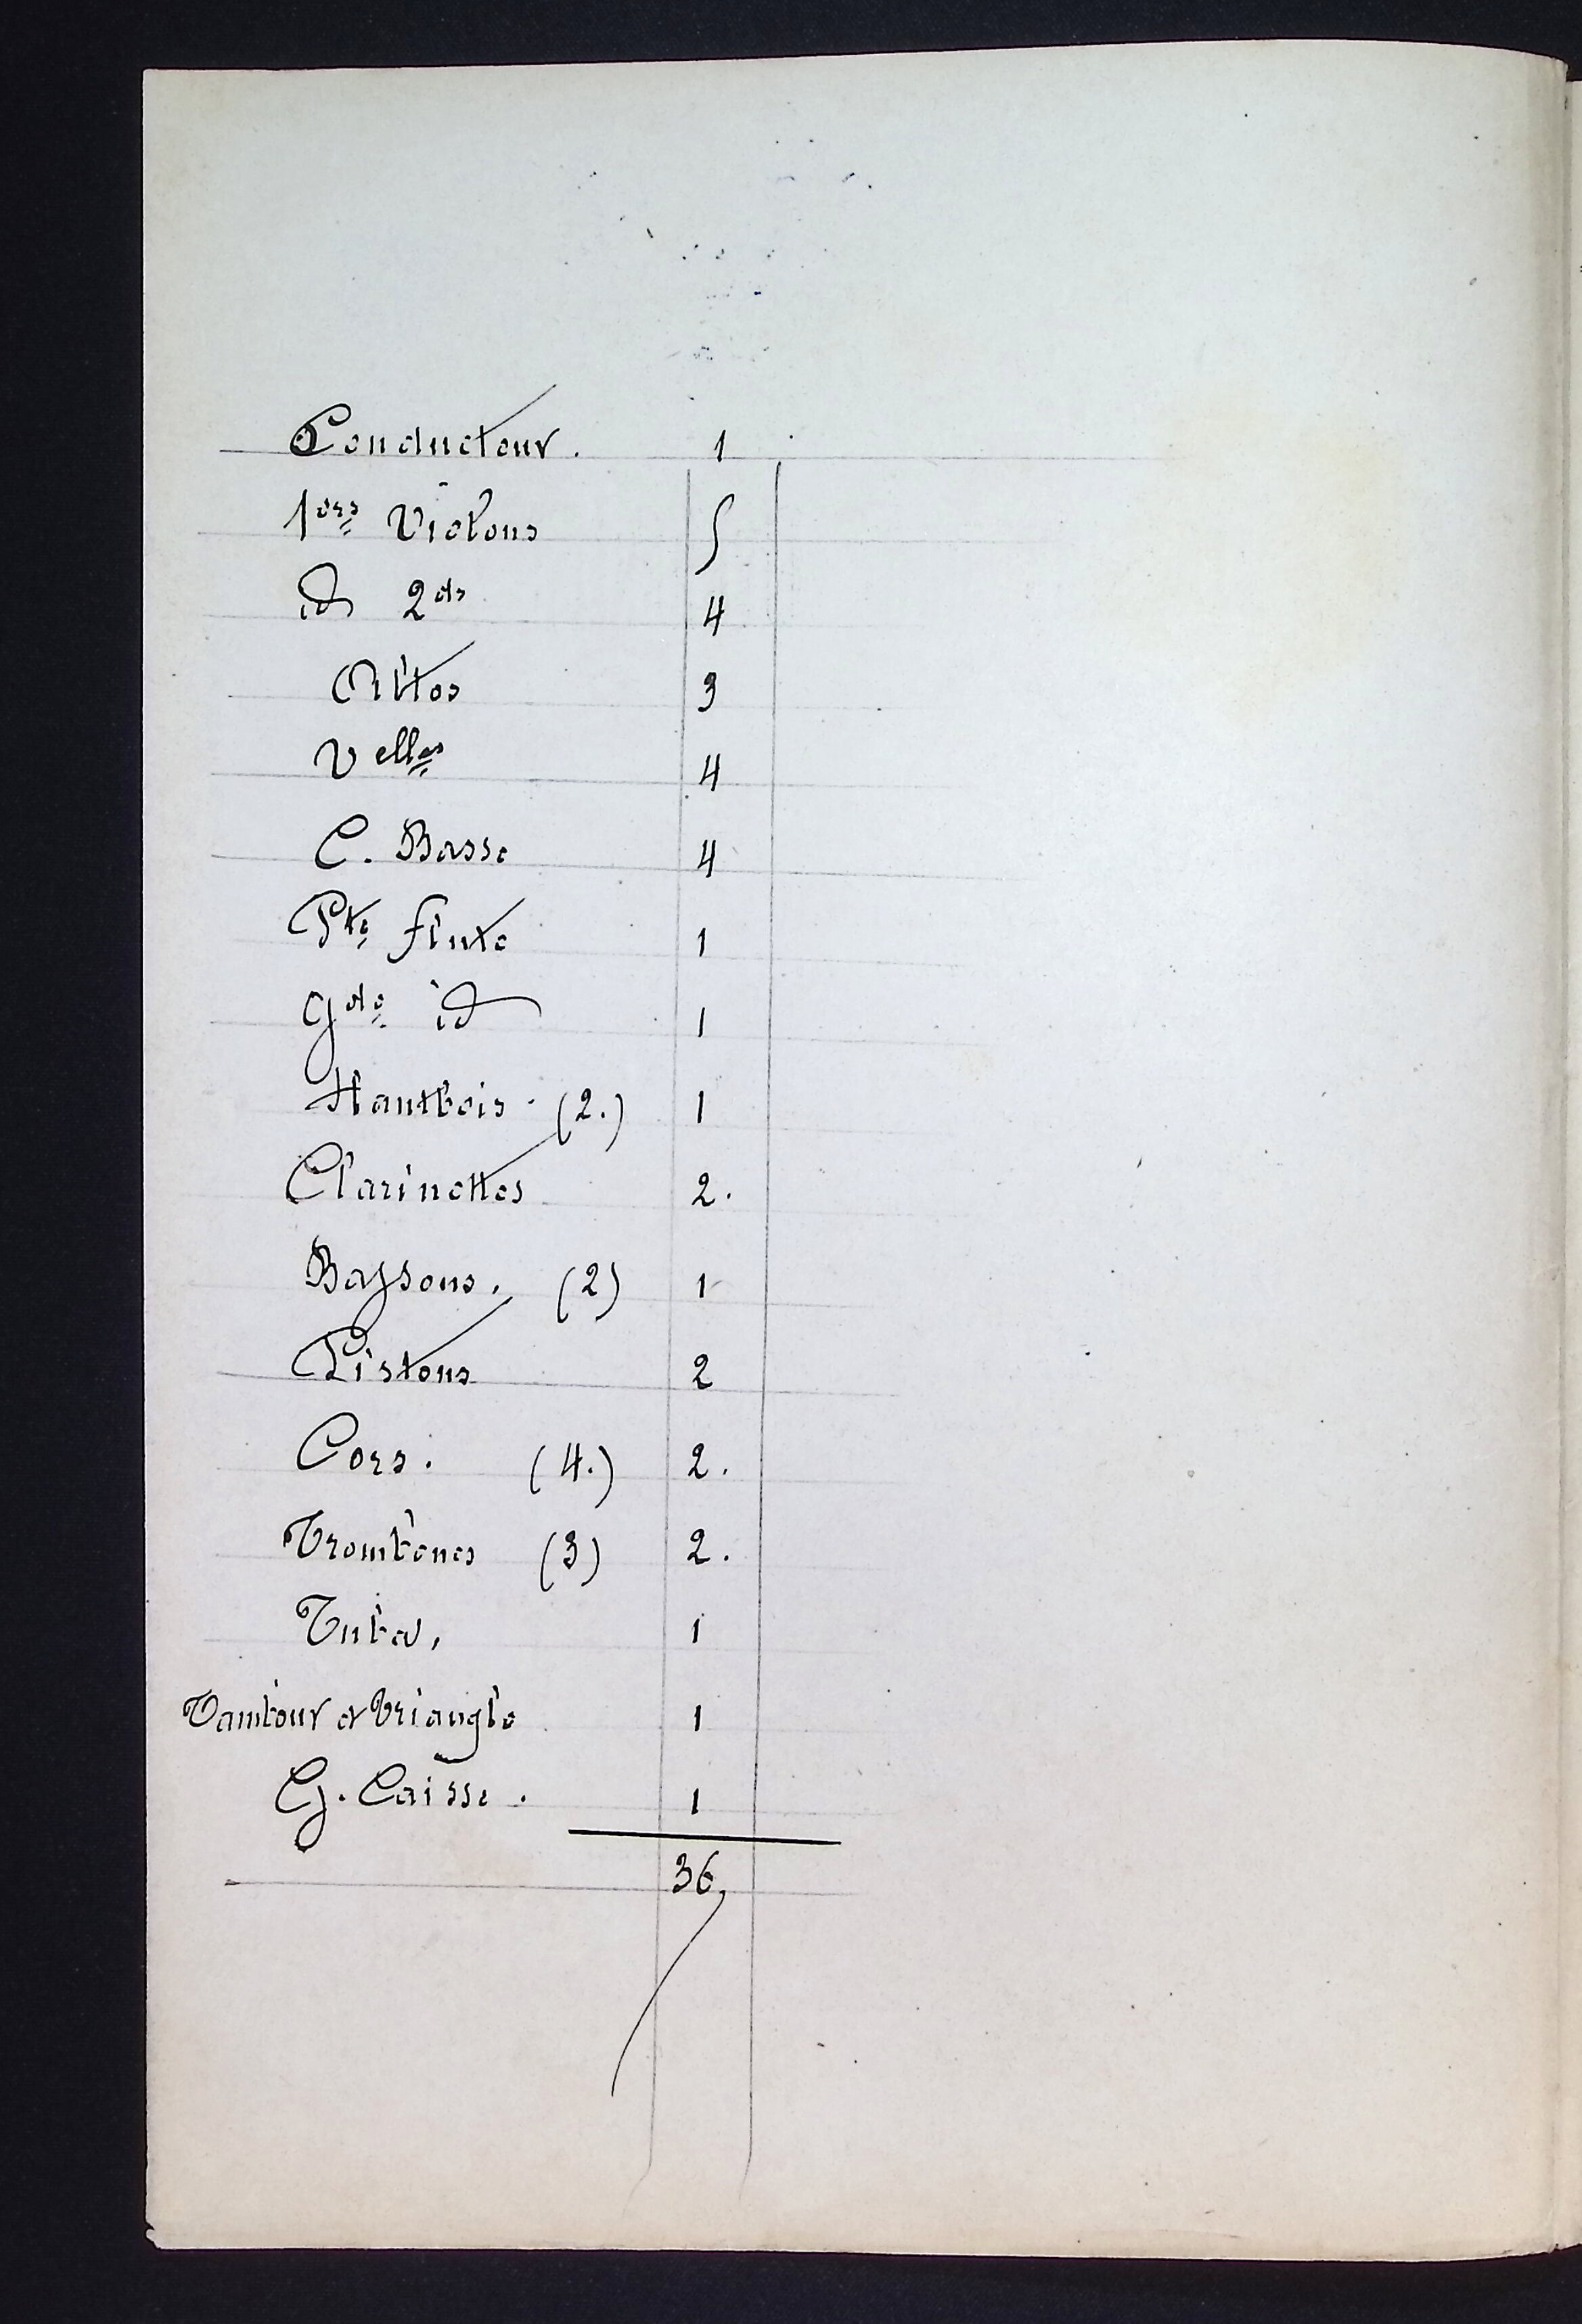 Conducteur. 1
1ers Violons 5
id 2ds 4
Altos 3
Velles 4
C. Basse 4
Pte flute 1
gde id 1
Hautbois. (2.) 1
Clarinettes 2.
Bassons. (2) 1
Pistons 2
Cors. (4.) 2.
Trombones (3) 2.
Tuba, 1
Tambour et Triangle 1
G. Caisse. 1
36